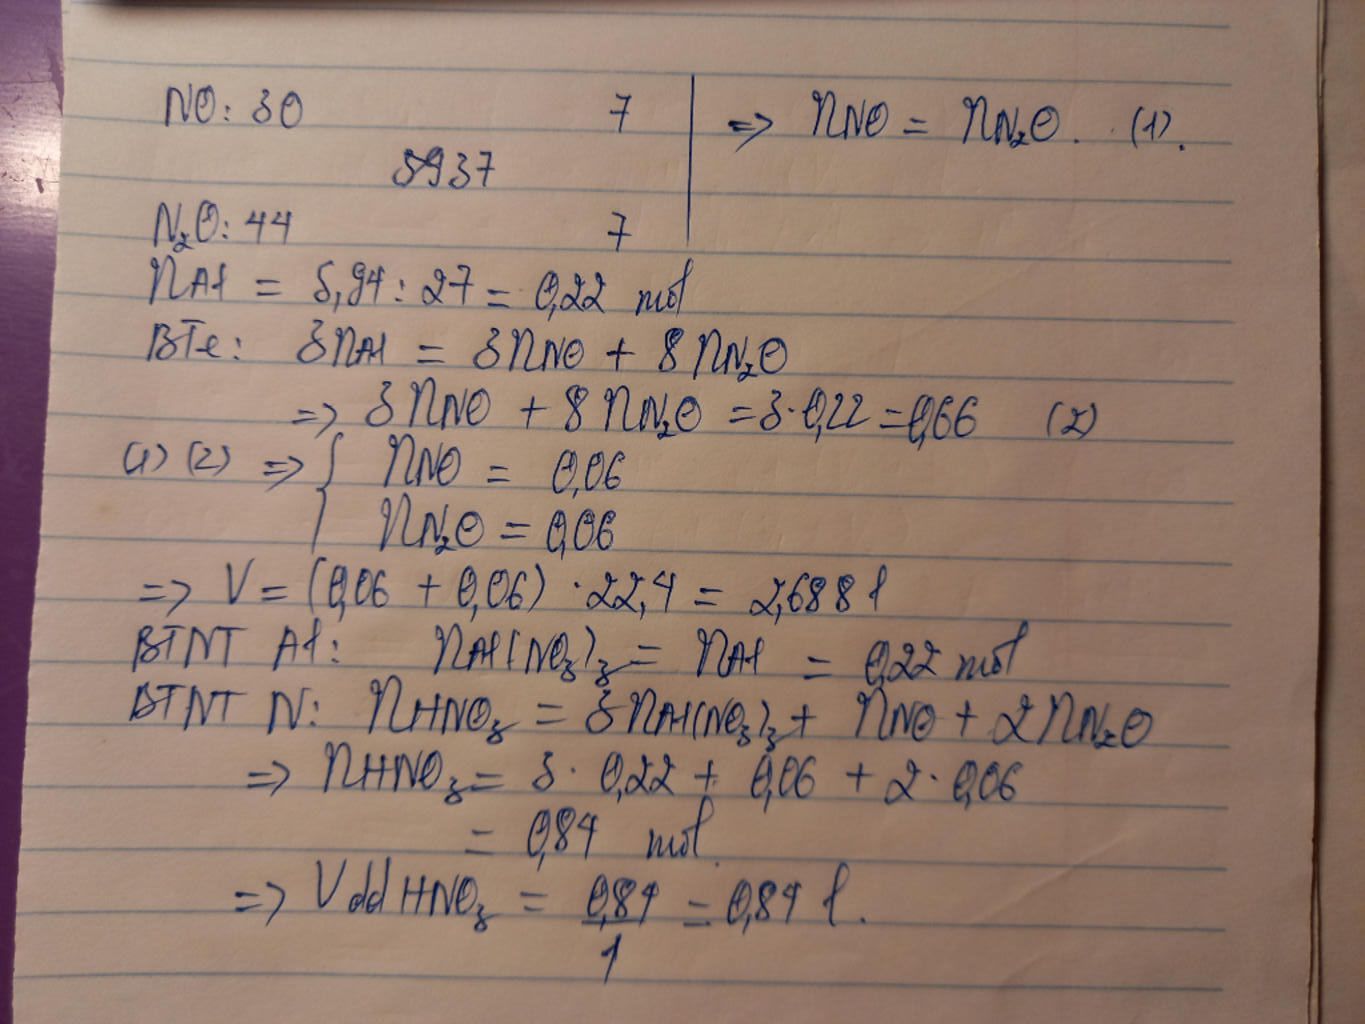 NO: 30 7 => nNO = nN₂O. (1).
37
N₂O: 44 7
nAl = 5,94 : 27 = 0,22 mol
BTe: 3nAl = 3nNO + 8nN₂O
=> 3nNO + 8nN₂O = 3·0,22 = 0,66 (2)
(1) (2) => { nNO = 0,06
nN₂O = 0,06
=> V = (0,06 + 0,06) · 22,4 = 2,688 l
BTNT Al: nAl(NO₃)₃ = nAl = 0,22 mol
BTNT N: nHNO₃ = 3nAl(NO₃)₃ + nNO + 2nN₂O
=> nHNO₃ = 3 · 0,22 + 0,06 + 2 · 0,06
= 0,84 mol
=> Vdd HNO₃ = 0,84/1 = 0,84 l.